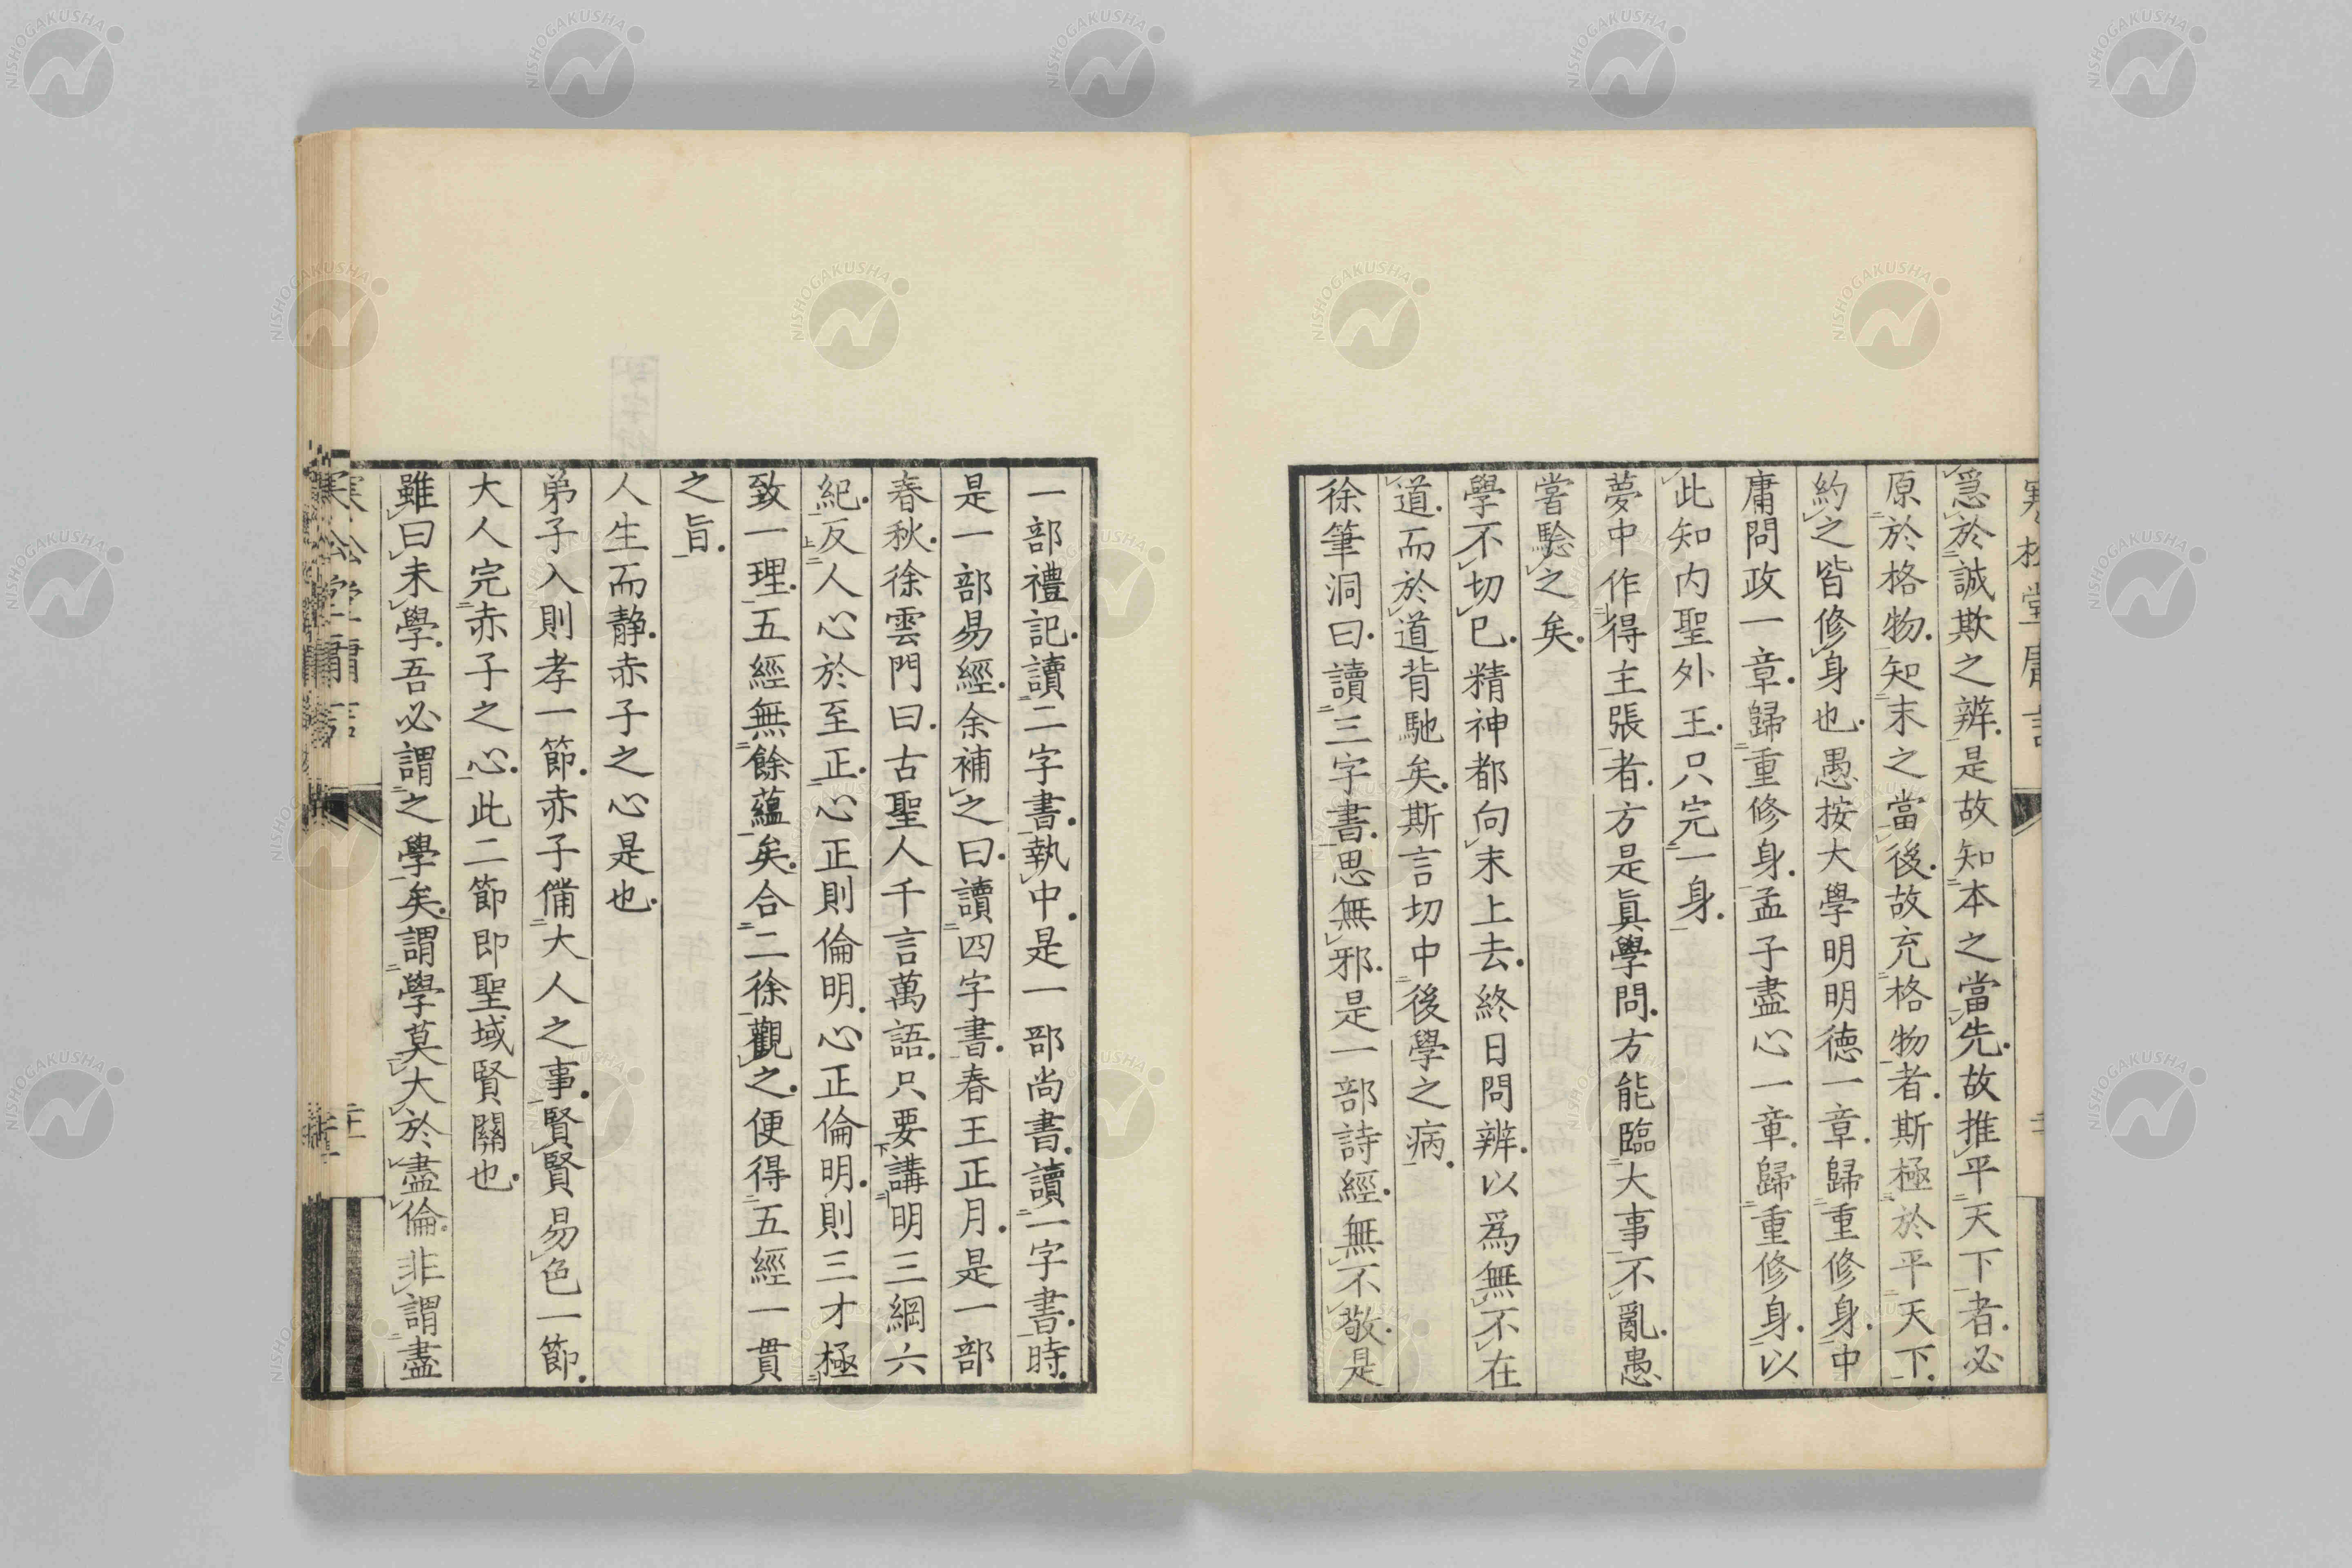 寒松堂庸言
急於誠欺之辨是故知本之當先故推平天下者必
原於格物知末之當後故充格物者斯極於平天下
約之皆修身也愚按大學明明德一章歸重修身中
庸問政一章歸重修身孟子盡心一章歸重修身以
此知内聖外王只完一身
夢中作得主張者方是眞學問方能臨大事不亂愚
嘗驗之矣
學不切已精神都向末上去終日問辨以爲無不在
道而於道背馳矣斯言切中後學之病
徐筆洞曰讀三字書思無邪是一部詩經無不敬是
一部禮記讀二字書執中是一部尚書讀一字書時
是一部易經余補之曰讀四字書春王正月是一部
春秋徐雲門曰古聖人千言萬語只要講明三綱六
紀反人心於至正心正則倫明心正倫明則三才極
致一理五經無餘蘊矣合二徐觀之便得五經一貫
之旨
人生而静赤子之心是也
弟子入則孝一節赤子備大人之事賢賢易色一節
大人完赤子之心此二節即聖域賢關也
雖曰未學吾必謂之學矣謂學莫大於盡倫非謂盡
寒松堂庸言
NISHOGAKUSHA